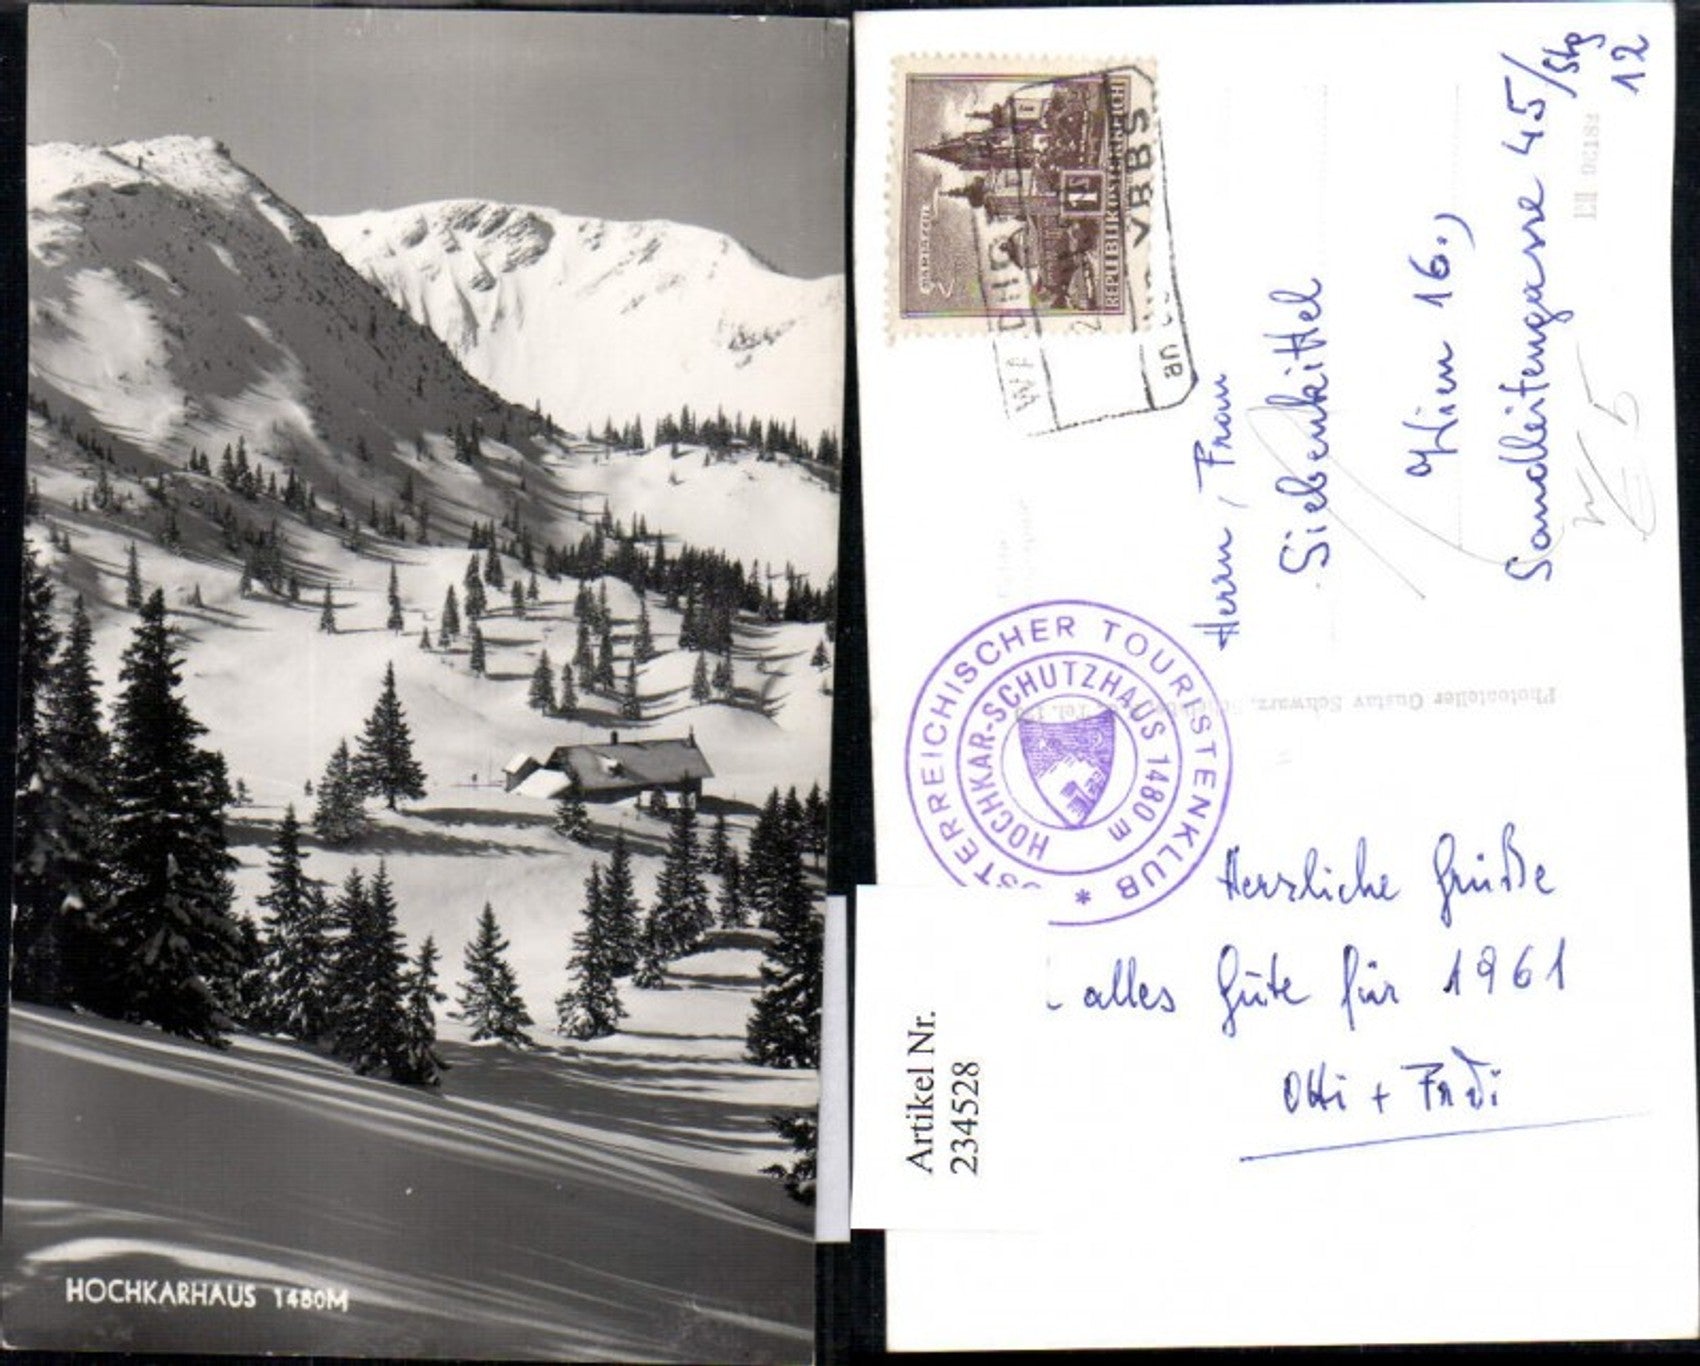 HOCHKARHAUS 1480M
Mariazell
1 S
REPUBLIK ÖSTERREICH
WAIDHO
YBBS
Herrn, Frau
Siebenkittel
Wien 16.,
Sandleitengasse 45/Stg
12
Photoatelier Gustav Schwarz,
ÖSTERREICHISCHER TOURISTENKLUB *
HOCHKAR-SCHUTZHAUS 1480 m
Herzliche Grüße
alles Gute für 1961
Otti + Fredi
Artikel Nr.
234528